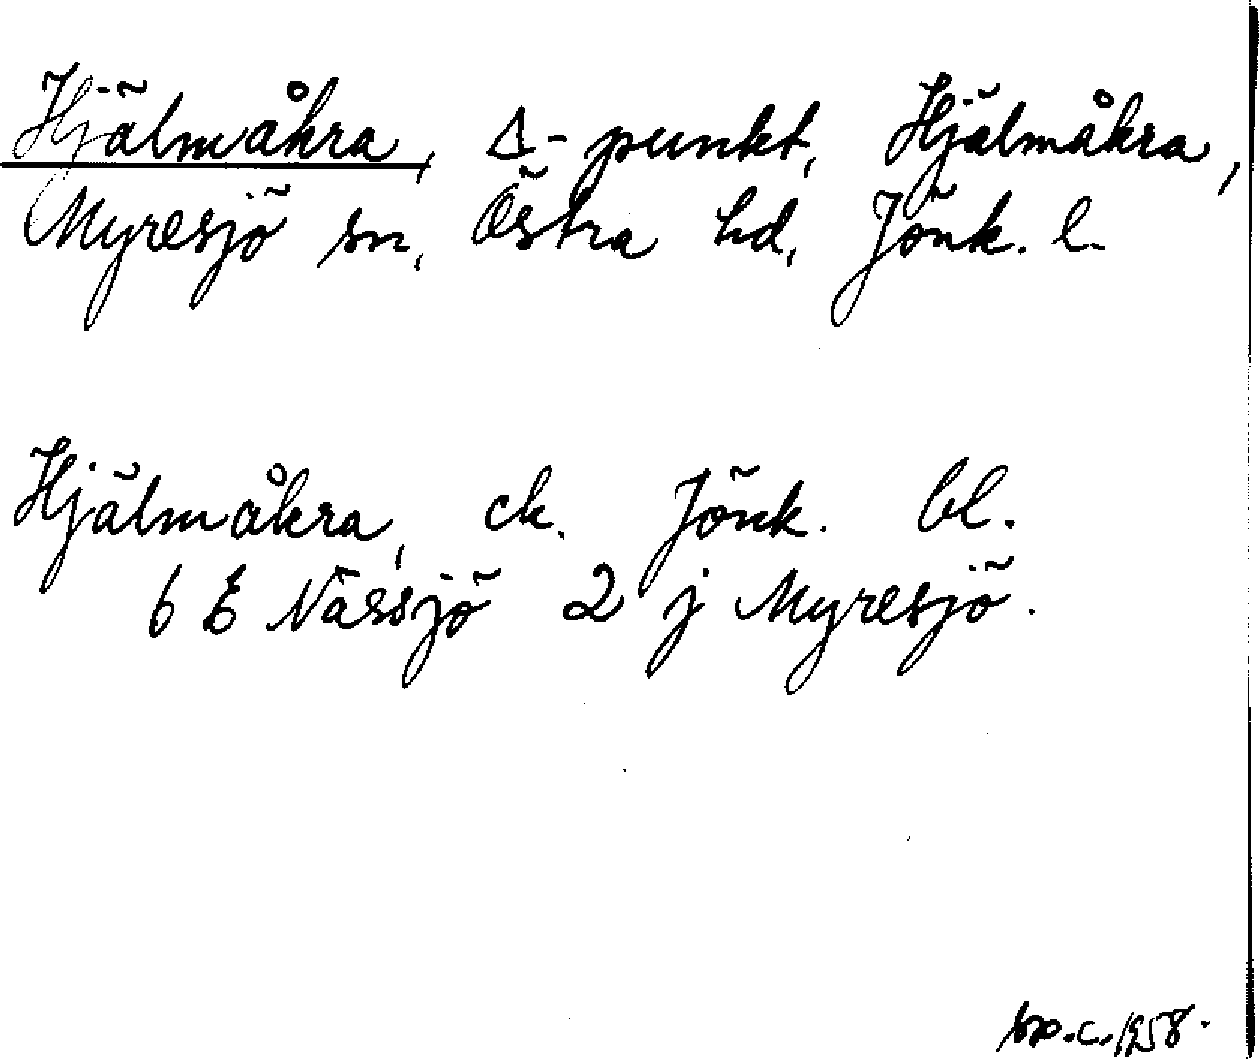 Hjälmåkra, Δ-punkt, Hjälmåkra,
Myresjö sn, Östra hd, Jönk. l.
Hjälmåkra, ek. Jönk. bl.
6 E Nässjö 2 j Myresjö.
1958.